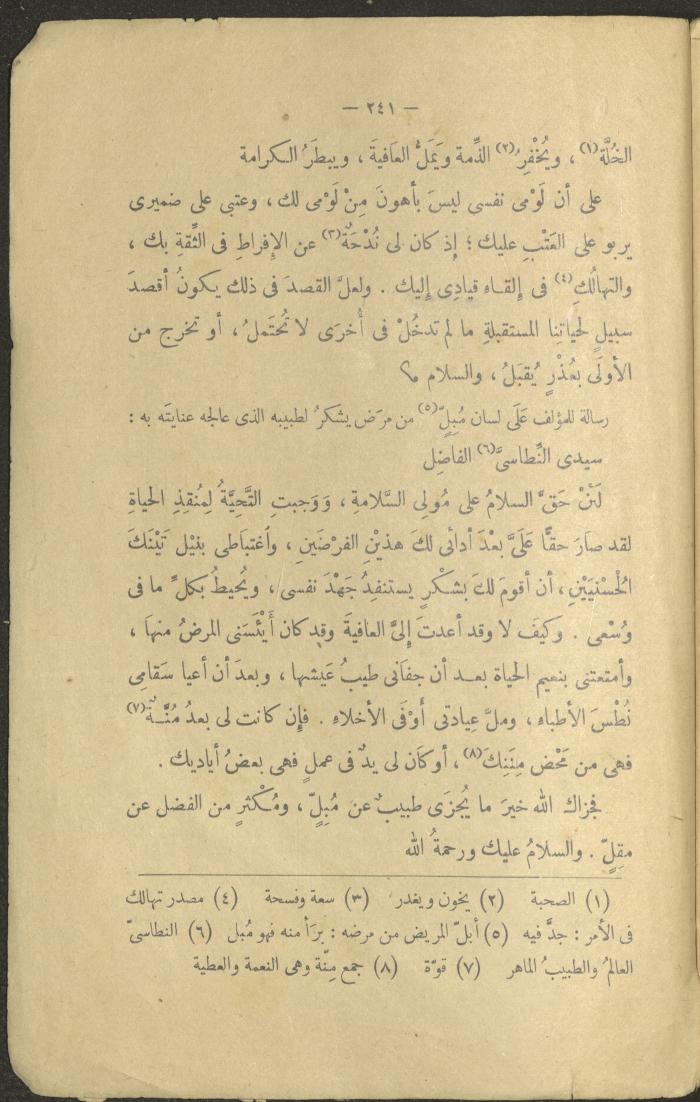 — ٢٤١ —
الخُلَّة(١) ، ويُخْفِرُ(٢) الذِّمة ويَمَلُّ العافيةَ ، ويبطَرُ الكرامة
على أن لَوْمى نفسى ليسَ بأهونَ مِنْ لَوْمى لك ، وعتبى على ضميرى
يربو على العَتْبِ عليك ؛ إذ كان لى نُدْحَةٌ(٣) عن الإفراطِ فى الثِّقةِ بك ،
والتهالُكِ(٤) فى إلقاء قيادِى إليك . ولعلَّ القصدَ فى ذلك يكونُ أقصدَ
سبيلٍ لحياتِنا المستقبلةِ ما لم تدخُلْ فى أُخرَى لا تُحتَملُ ، أو تخرج من
الأولَى بعُذْرٍ يُقبَلُ ، والسلام
رسالة للمؤلف عَلَى لسان مُبِلّ(٥) من مرَض يشكرُ لطبيبه الذى عالجه عنايتَه به :
سيدى النِّطاسىَّ(٦) الفاضِل
لَئنْ حَقَّ السلامُ على مُولِى السَّلامةِ ، وَوَجبتِ التَّحِيَّةُ لِمُنقِذِ الحياةِ
لقد صارَ حقًّا عَلَىَّ بعْدَ أدائى لكَ هذيْنِ الفرْضَينِ ، واغتباطى بنَيْل تَيْنَكَ
الْحُسْنيَيْنِ ، أن أقومَ لكَ بشكْرٍ يستنفِدُ جَهْدَ نفسى ، ويُحيطُ بكلِّ ما فى
وُسْعى . وكيفَ لا وقد أعدتَ إلىَّ العافيةَ وقد كان أَيْأَسَنى المرضُ منها ،
وأمتعتنى بنعيم الحياة بعد أن جفَانى طيبُ عَيشها ، وبعدَ أن أعيا سَقامِى
نُطْسَ الأطباء ، وملَّ عِيادتى أَوْفَى الأخلاء . فإن كانت لى بعدُ مُنَّةٌ(٧)
فهى من مَحْض مِنَنِكَ(٨) ، أو كانَ لى يدٌ فى عملٍ فهى بعضُ أياديك .
فجزاك الله خيرَ ما يُجزَى طبيبٌ عن مُبِلّ ، ومُكْثرٍ من الفضل عن
مقِلّ . والسلامُ عليك ورحمةُ الله
(١) الصحبة (٢) يخون ويغدر (٣) سعة وفسحة (٤) مصدر تهالك
فى الأمر : جدَّ فيه (٥) أبلّ المريض من مرضه : برَأ منه فهو مُبل (٦) النطاسىّ
العالمُ والطبيبُ الماهر (٧) قوّة (٨) جمع مِنّة وهى النعمة والعطية